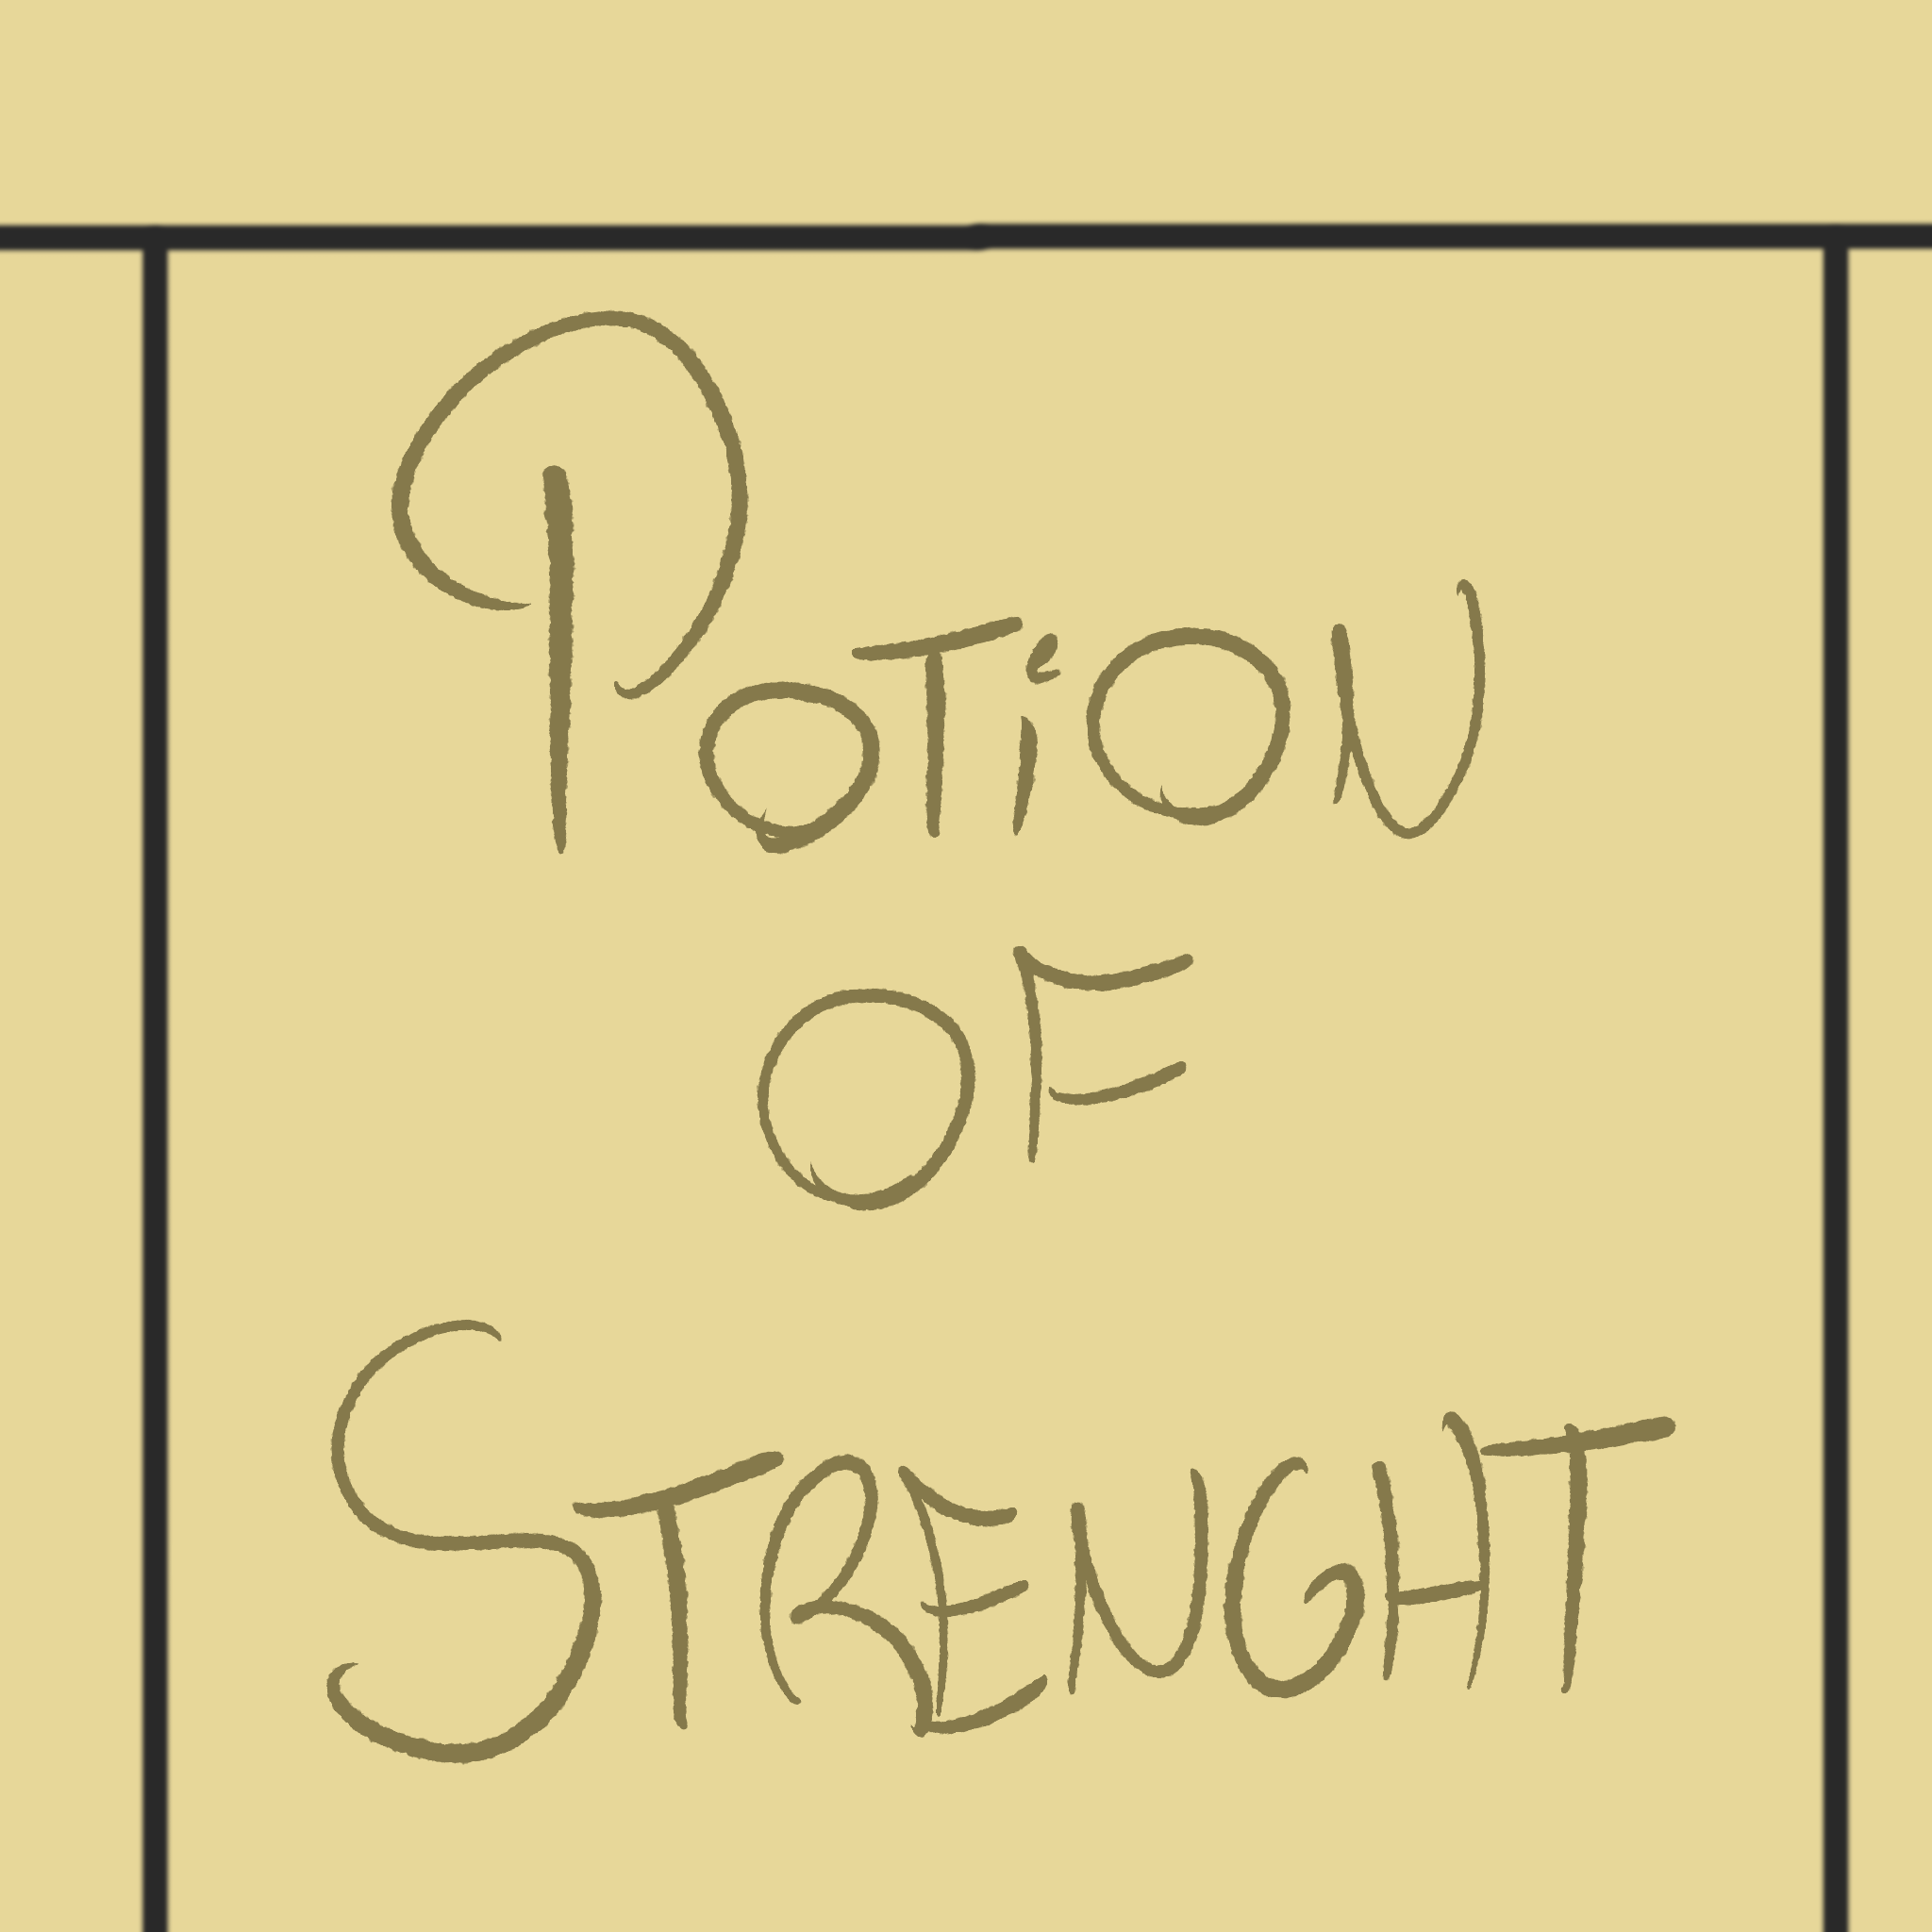 PoTiON
OF
STRENGHT